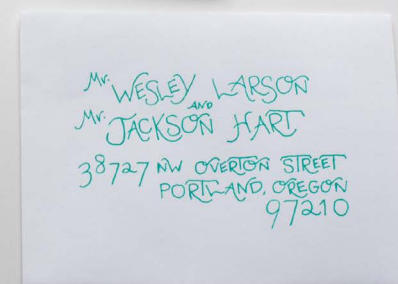 Mr. WESLEY LARSON
AND
Mr. JACKSON HART
38727 NW OVERTON STREET
PORTLAND, OREGON
97210